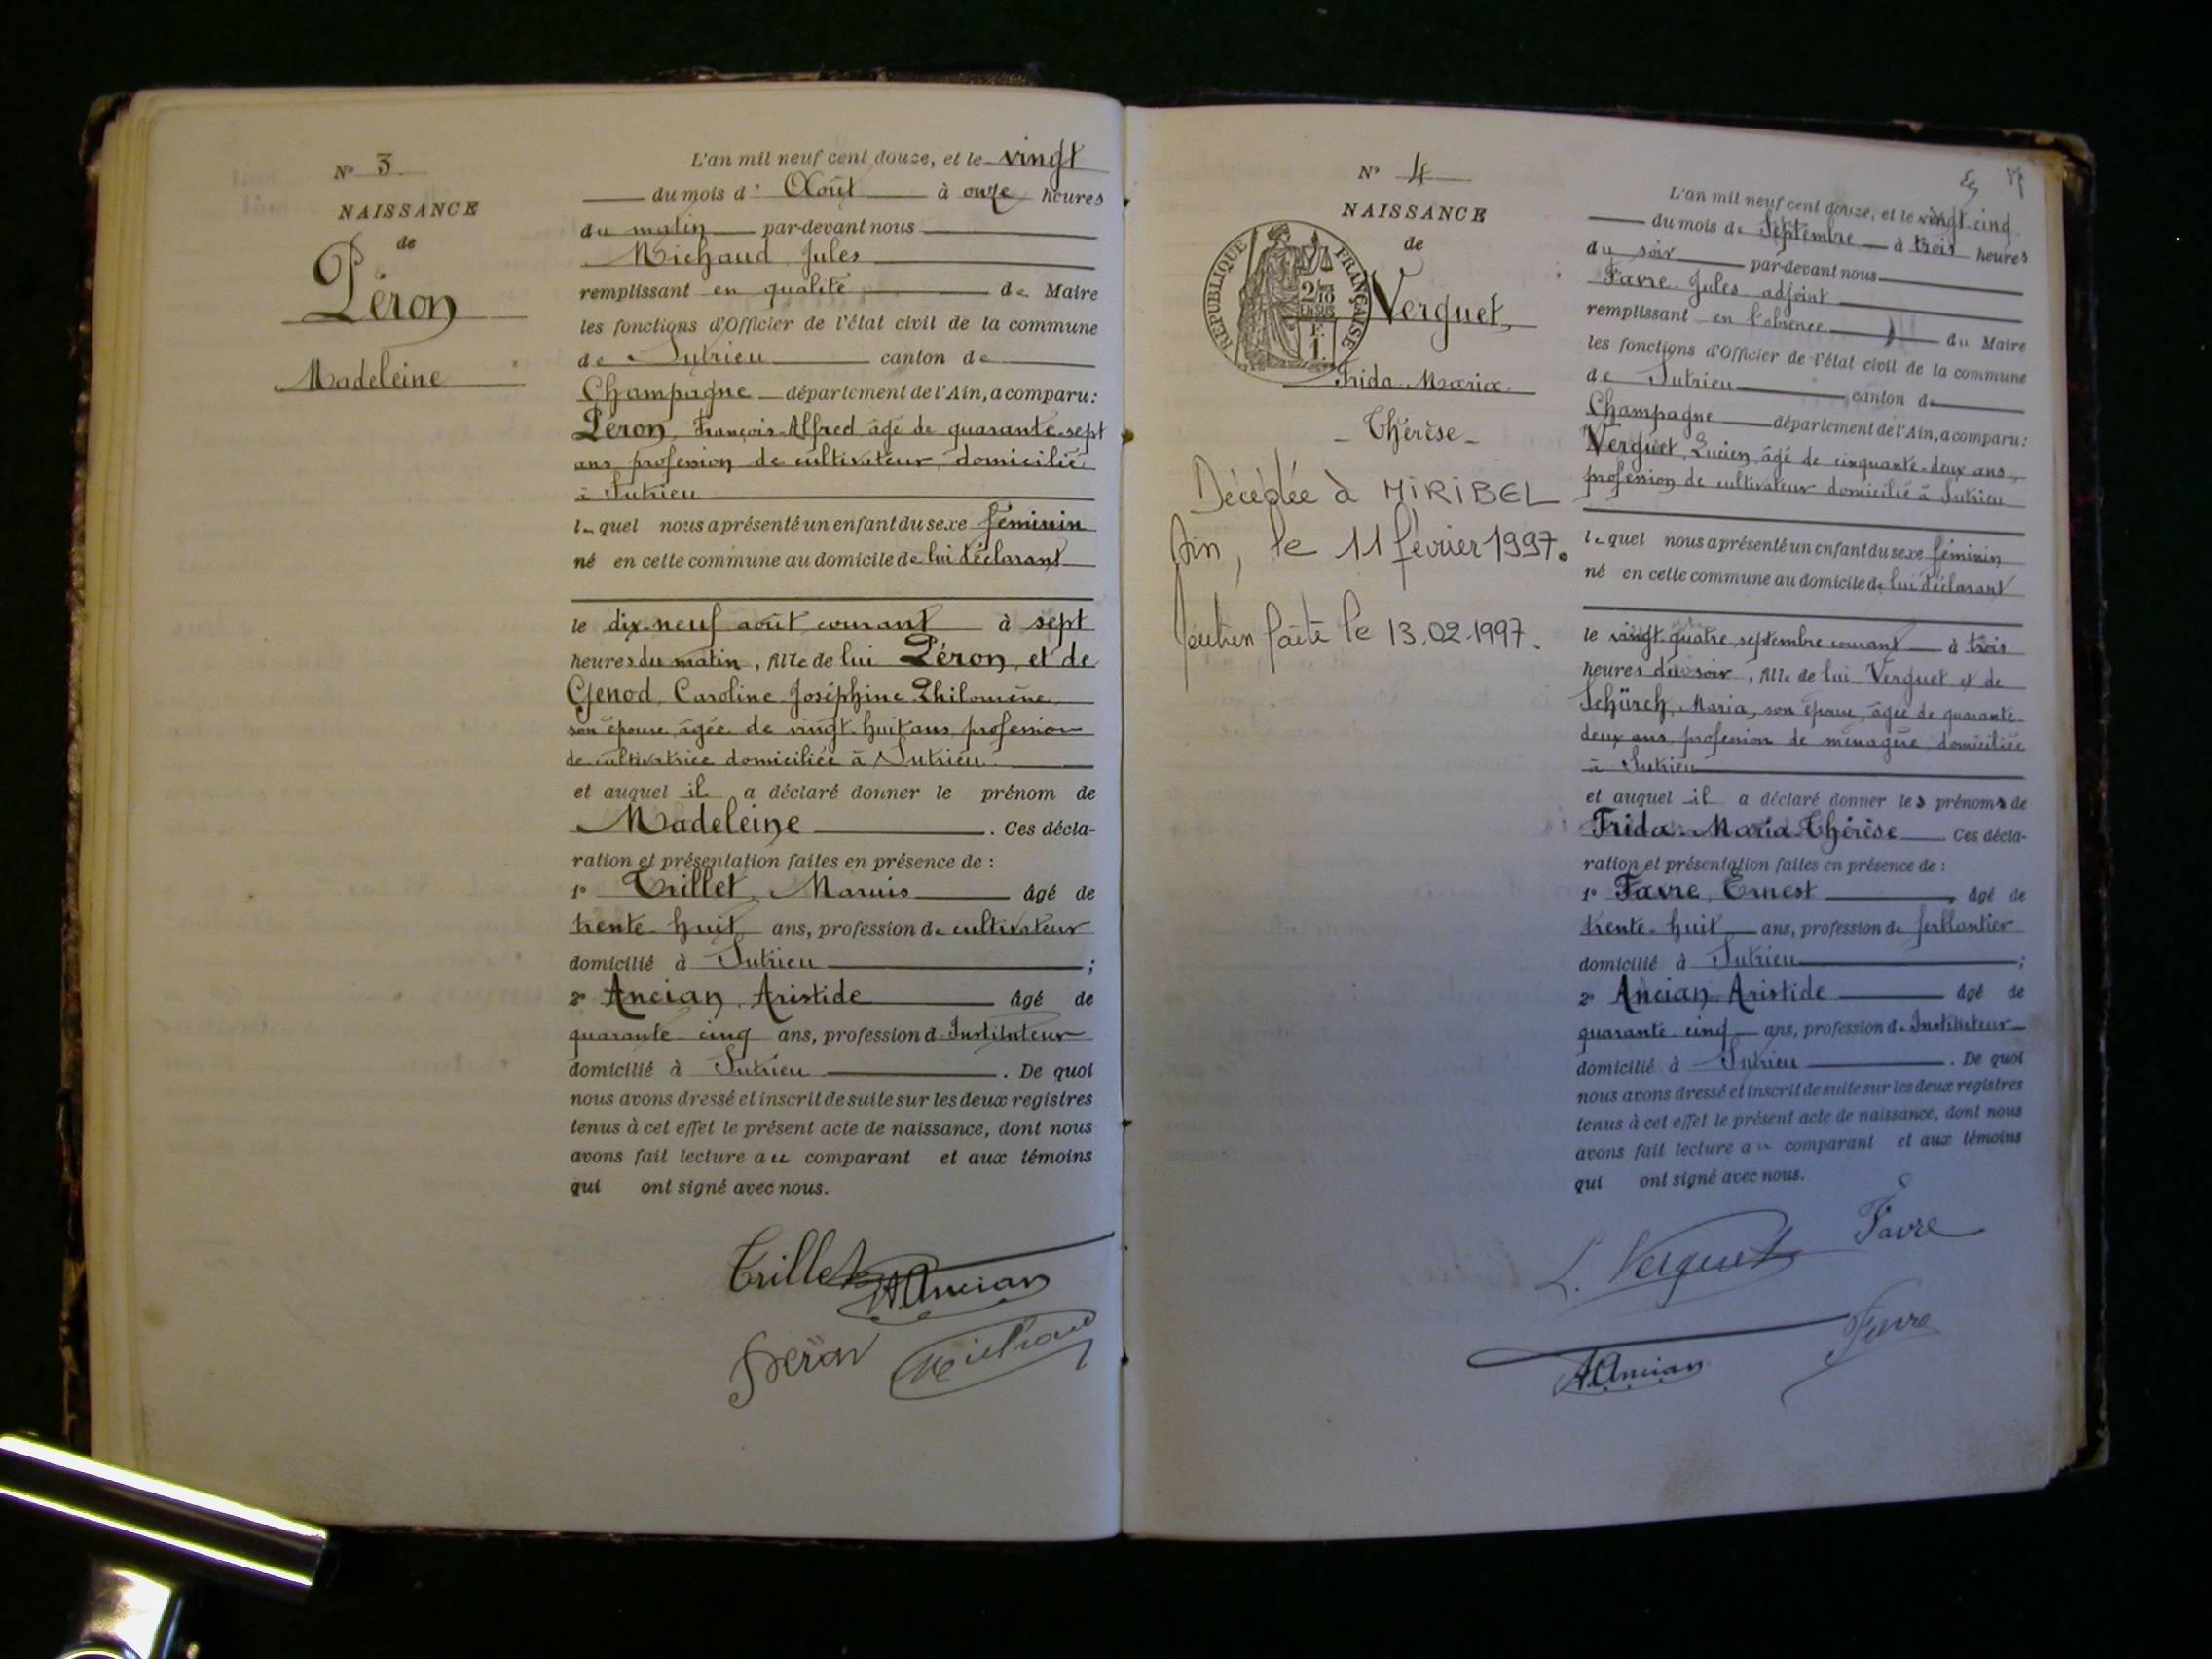 N° 3
NAISSANCE
de
Péron
Madeleine
L'an mil neuf cent douze, et le vingt
du mois d' Août à onze heures
du matin par-devant nous
Michaud Jules
remplissant en qualité de Maire
les fonctions d'Officier de l'état civil de la commune
de Sutrieu canton de
Champagne département de l'Ain, a comparu:
Péron, François-Alfred âgé de quarante-sept
ans profession de cultivateur, domicilié
à Sutrieu
lequel nous a présenté un enfant du sexe féminin
né en cette commune au domicile de lui déclarant
le dix-neuf août courant à sept
heures du matin, fille de lui Péron, et de
Genod, Caroline Joséphine Philomène
son épouse âgée de vingt-huit ans profession
de cultivatrice domiciliée à Sutrieu
et auquel il a déclaré donner le prénom de
Madeleine. Ces décla-
ration et présentation faites en présence de :
1° Trillet, Marius âgé de
trente-huit ans, profession de cultivateur
domicilié à Sutrieu ;
2° Ancian, Aristide âgé de
quarante cinq ans, profession d'Instituteur
domicilié à Sutrieu. De quoi
nous avons dressé et inscrit de suite sur les deux registres
tenus à cet effet le présent acte de naissance, dont nous
avons fait lecture au comparant et aux témoins
qui ont signé avec nous.
Trillet A. Ancian
Péron Michaud
N° 4
NAISSANCE
de
RÉPUBLIQUE FRANÇAISE
2/10
EN SUS
F.
1
Verguet,
Frida-Maria
- Thérèse -
Décédée à MIRIBEL
Ain, le 11 février 1997.
faite le 13.02.1997.
L'an mil neuf cent douze, et le vingt-cinq
du mois de Septembre à trois heures
du soir par-devant nous
Favre Jules adjoint
remplissant en l'absence du Maire
les fonctions d'Officier de l'état civil de la commune
de Sutrieu canton de
Champagne département de l'Ain, a comparu:
Verguet, Lucien, âgé de cinquante-deux ans,
profession de cultivateur domicilié à Sutrieu
lequel nous a présenté un enfant du sexe féminin
né en cette commune au domicile de lui déclarant
le vingt-quatre septembre courant à trois
heures du soir, fille de lui Verguet et de
Schürch, Maria, son épouse, âgée de quarante-
deux ans, profession de ménagère, domiciliée
à Sutrieu
et auquel il a déclaré donner les prénoms de
Frida-Maria-Thérèse Ces décla-
ration et présentation faites en présence de :
1° Favre, Ernest, âgé de
trente-huit ans, profession de ferblantier
domicilié à Sutrieu ;
2° Ancian Aristide âgé de
quarante-cinq ans, profession d'Instituteur
domicilié à Sutrieu. De quoi
nous avons dressé et inscrit de suite sur les deux registres
tenus à cet effet le présent acte de naissance, dont nous
avons fait lecture au comparant et aux témoins
qui ont signé avec nous.
L. Verguet Favre
A. Ancian Favre